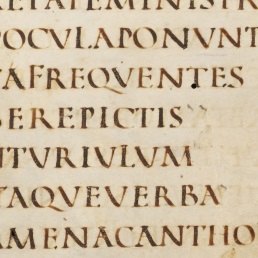 ETATEMINISTR
POCULAPONUNT
TAFREQUENTES
BEREPICTIS
NTURIULUM
TAQUEVERBA
AMENACANTHO